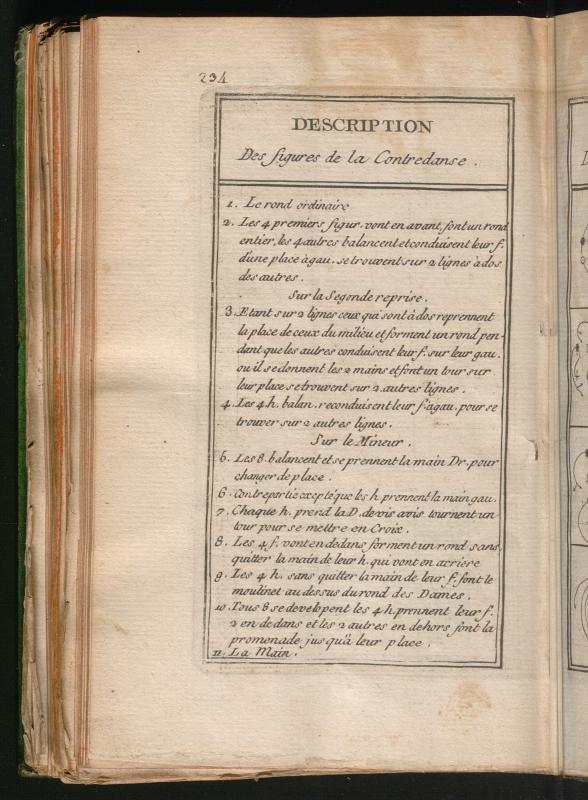 234
DESCRIPTION
Des figures de la Contredanse.
1. Le rond ordinaire
2. Les 4 premiers figur. vont en avant, font un rond
entier, les 4 autres balancent et conduisent leur f.
d'une place à gau. se trouvent sur 2 lignes à dos
des autres.
Sur la Segonde reprise.
3. Etant sur 2 lignes ceux qui sont à dos reprennent
la place de ceux du milieu et forment un rond pen-
dant que les autres conduisent leur f. sur leur gau.
ou il se donnent les 2 mains et font un tour sur
leur place se trouvent sur 2 autres lignes.
4. Les 4 h. balan. reconduisent leur f. à gau. pour se
trouver sur 2 autres lignes.
Sur le Mineur.
5. Les 8. balancent et se prennent la main Dr. pour
changer de place.
6. Contrepartie excepté que les h. prennent la main gau.
7. Chaque h. prend la D. de vis avis tournent un
tour pour se mettre en Croix.
8. Les 4 f. vont en dedans forment un rond sans
quitter la main de leur h. qui vont en arriere
9. Les 4 h. sans quitter la main de leur f. font le
moulinet au dessus du rond des Dames.
10. Tous 8 se developent les 4 h. prennent leur f.
2 en dedans et les 2 autres en dehors font la
promenade jusqu'à leur place.
11. La Main.